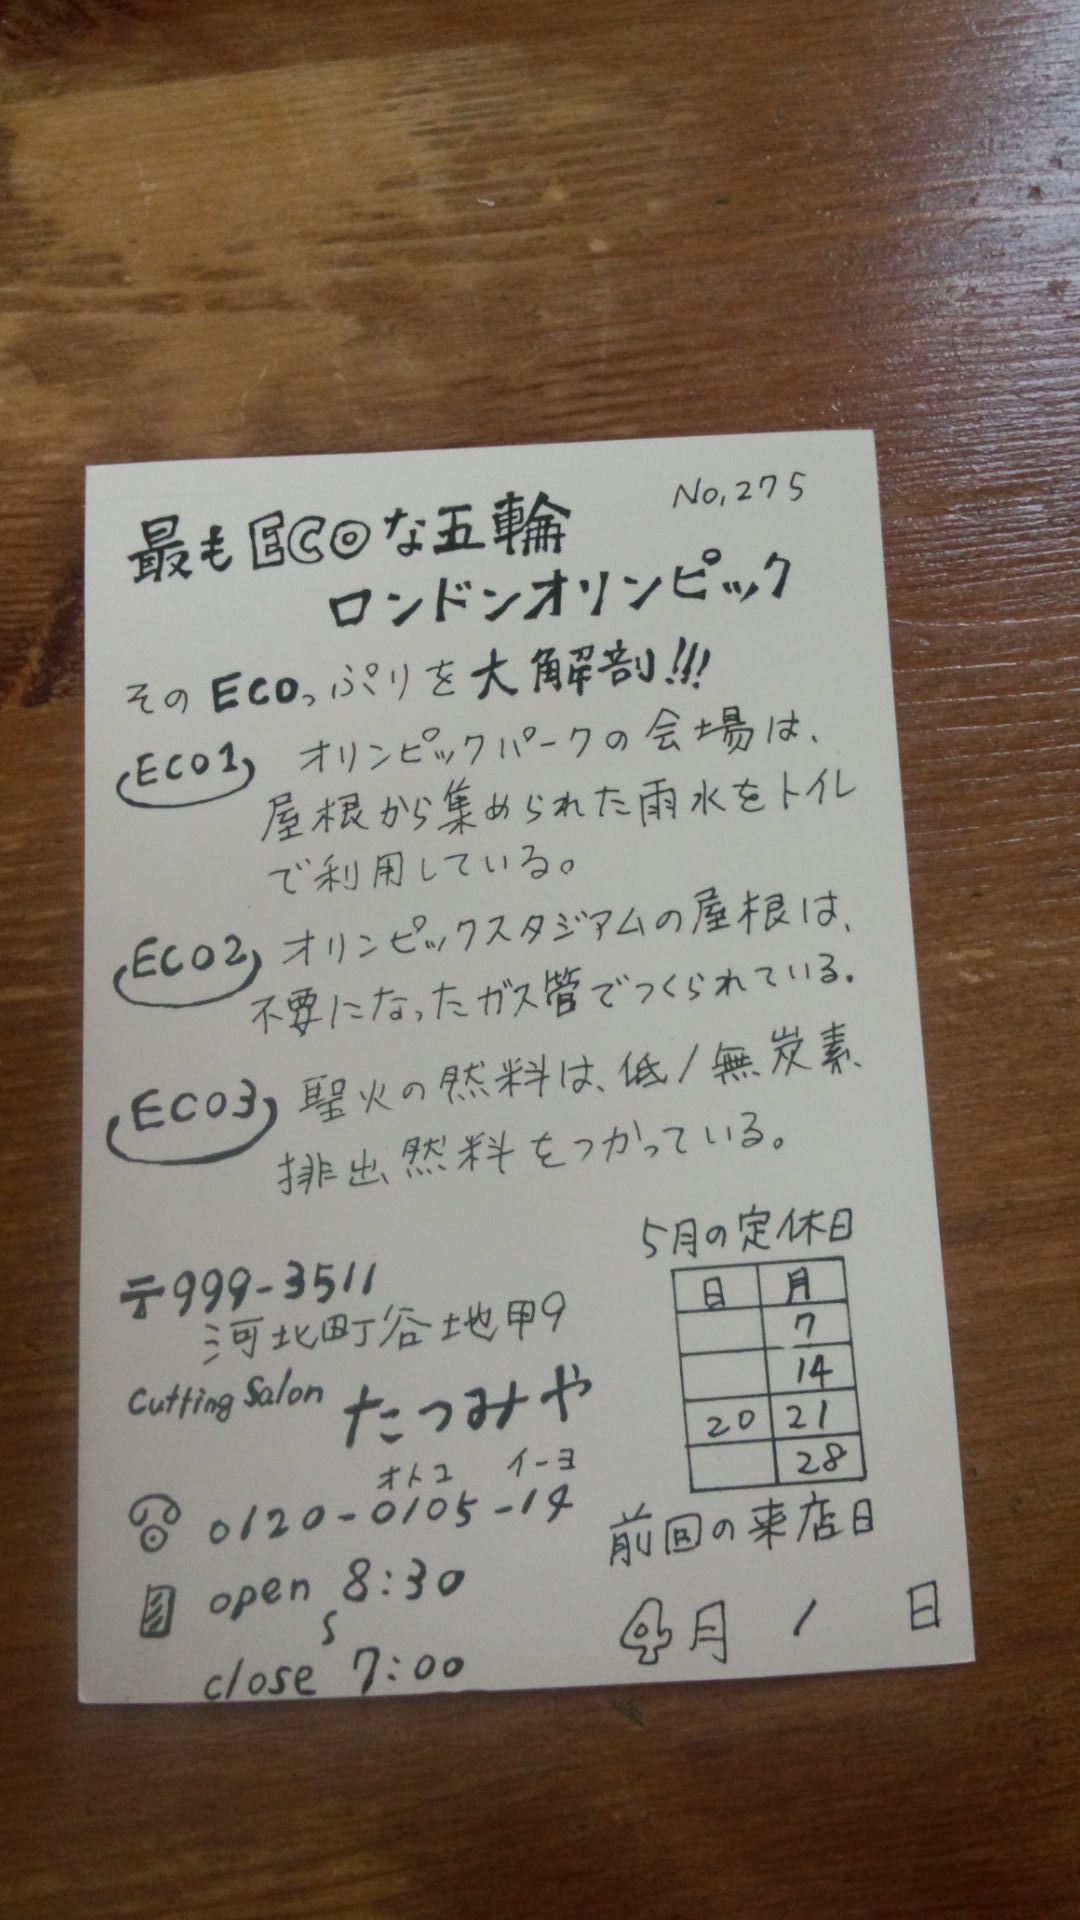 No,275
最もECOな五輪
ロンドンオリンピック
そのECOっぷりを大解剖!!!
ECO1 オリンピックパークの会場は、
屋根から集められた雨水をトイレ
で利用している。
ECO2 オリンピックスタジアムの屋根は、
不要になったガス管でつくられている。
ECO3 聖火の燃料は、低/無炭素
排出燃料をつかっている。
〒999-3511
河北町谷地甲9
Cutting Salon たつみや
オトコ イーヨ
0120-0105-14
open 8:30
〜
close 7:00
5月の定休日
日 月
7
14
20 21
28
前回の来店日
4月 1 日